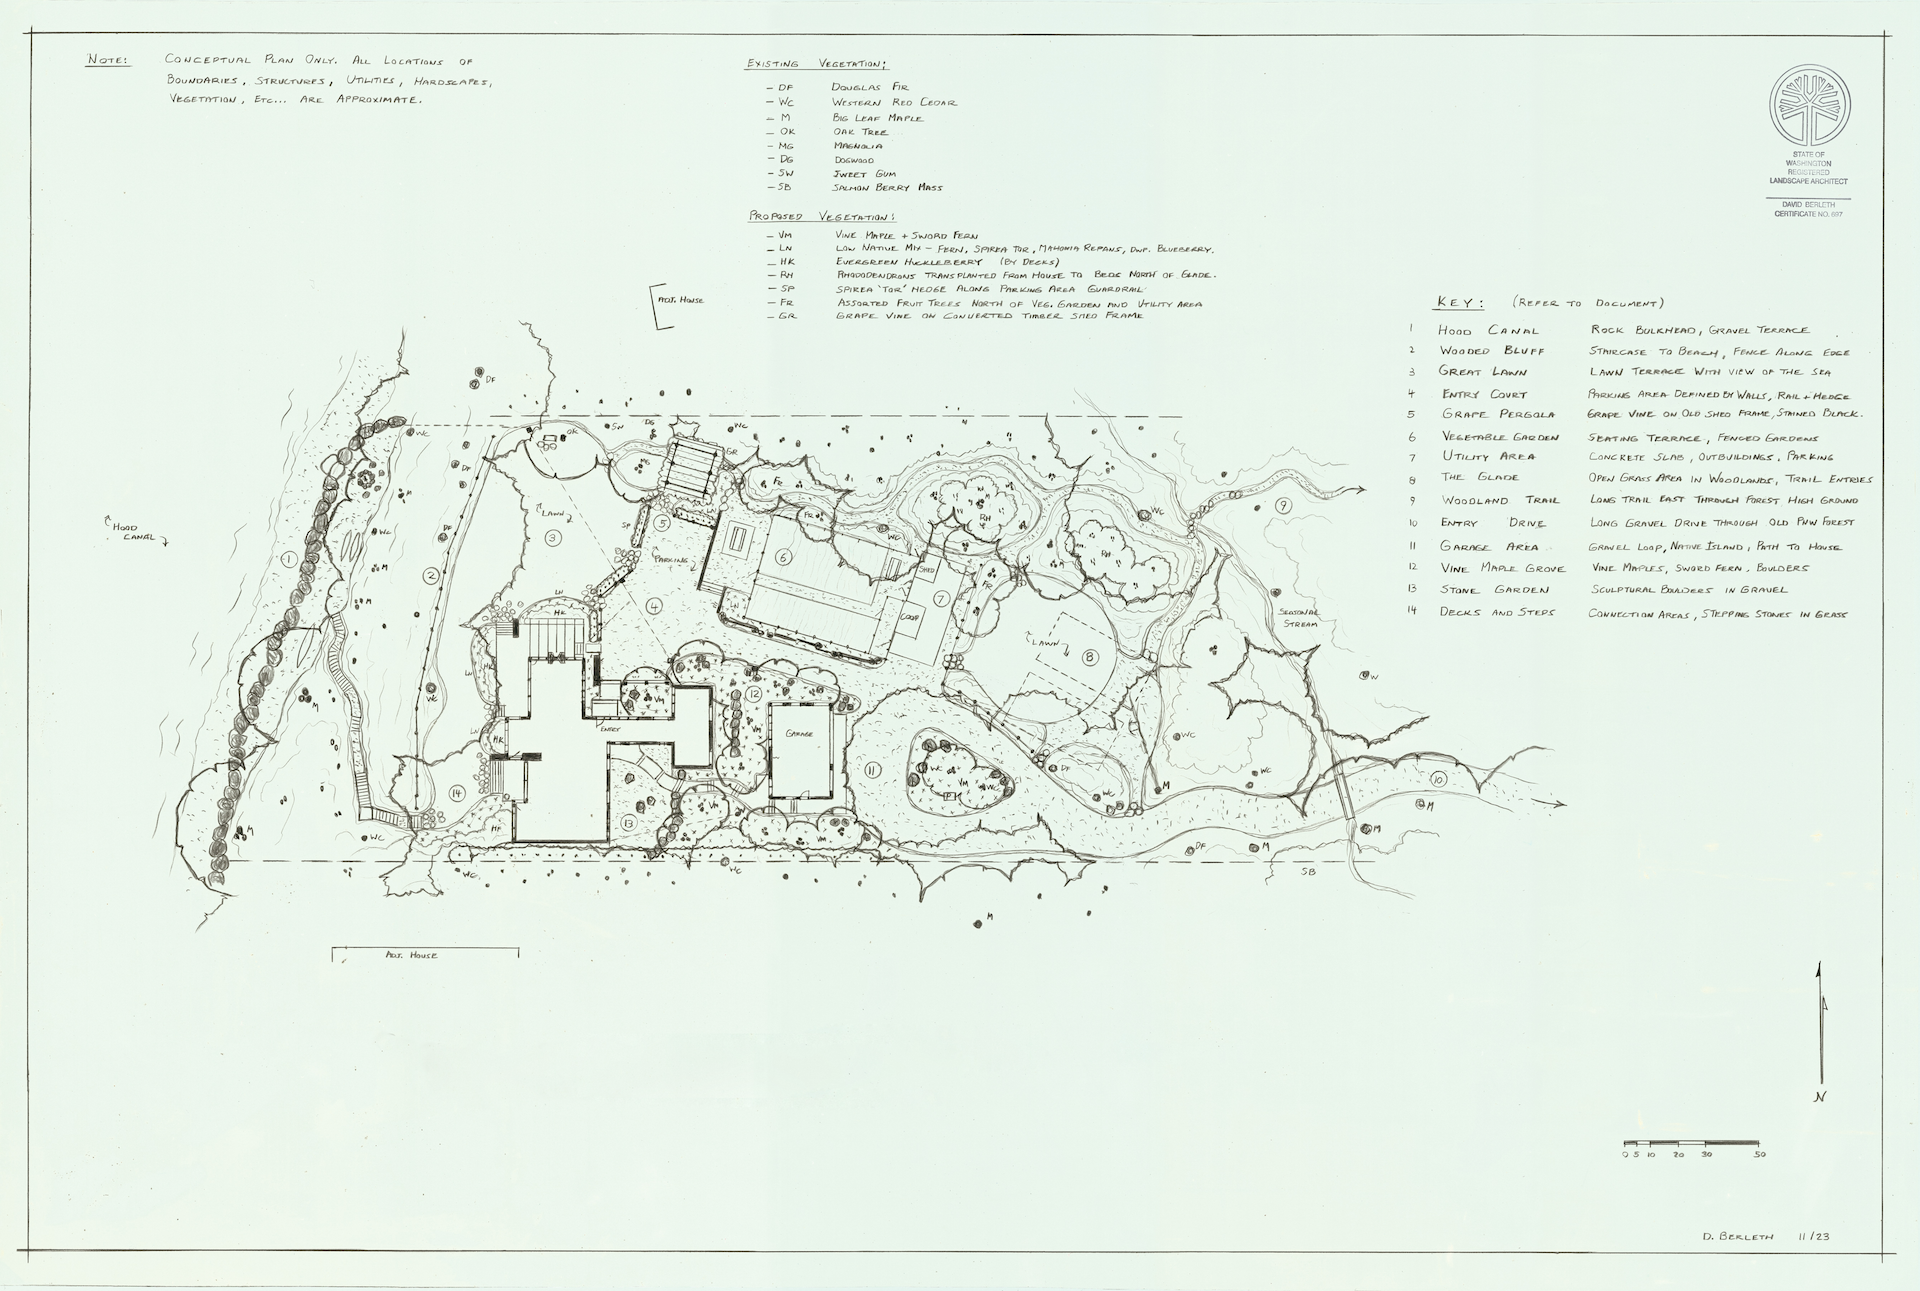 NOTE: CONCEPTUAL PLAN ONLY. ALL LOCATIONS OF
BOUNDARIES, STRUCTURES, UTILITIES, HARDSCAPES,
VEGETATION, ETC... ARE APPROXIMATE.
EXISTING VEGETATION:
- DF DOUGLAS FIR
- WC WESTERN RED CEDAR
- M BIG LEAF MAPLE
- OK OAK TREE
- MG MAGNOLIA
- DG DOGWOOD
- SW SWEET GUM
- SB SALMON BERRY MASS
PROPOSED VEGETATION:
- VM VINE MAPLE + SWORD FERN
- LN LOW NATIVE MIX - FERN, SPIREA TOR, MAHONIA REPANS, DWF. BLUEBERRY.
- HK EVERGREEN HUCKLEBERRY (BY DECKS)
- RH RHODODENDRONS TRANSPLANTED FROM HOUSE TO BEDS NORTH OF GLADE.
- SP SPIREA 'TOR' HEDGE ALONG PARKING AREA GUARDRAIL
- FR ASSORTED FRUIT TREES NORTH OF VEG. GARDEN AND UTILITY AREA
- GR GRAPE VINE ON CONVERTED TIMBER SHED FRAME
STATE OF
WASHINGTON
REGISTERED
LANDSCAPE ARCHITECT
DAVID BERLETH
CERTIFICATE NO. 697
KEY: (REFER TO DOCUMENT)
1 HOOD CANAL ROCK BULKHEAD, GRAVEL TERRACE
2 WOODED BLUFF STAIRCASE TO BEACH, FENCE ALONG EDGE
3 GREAT LAWN LAWN TERRACE WITH VIEW OF THE SEA
4 ENTRY COURT PARKING AREA DEFINED BY WALLS, RAIL + HEDGE
5 GRAPE PERGOLA GRAPE VINE ON OLD SHED FRAME, STAINED BLACK.
6 VEGETABLE GARDEN SEATING TERRACE, FENCED GARDENS
7 UTILITY AREA CONCRETE SLAB, OUTBUILDINGS, PARKING
8 THE GLADE OPEN GRASS AREA IN WOODLANDS, TRAIL ENTRIES
9 WOODLAND TRAIL LONG TRAIL EAST THROUGH FOREST HIGH GROUND
10 ENTRY DRIVE LONG GRAVEL DRIVE THROUGH OLD PNW FOREST
11 GARAGE AREA GRAVEL LOOP, NATIVE ISLAND, PATH TO HOUSE
12 VINE MAPLE GROVE VINE MAPLES, SWORD FERN, BOULDERS
13 STONE GARDEN SCULPTURAL BOULDERS IN GRAVEL
14 DECKS AND STEPS CONNECTION AREAS, STEPPING STONES IN GRASS
ADJ. HOUSE
DF
WC
OK
SW
DG
WC
M
DF
MG
GR
FR
M
LAWN
5
FR
WC
RH
WC
9
HOOD
CANAL
WC
DF
3
SP
PARKING
6
RH
1
M
2
SHED
FR
7
M
LN
HK
4
LN
COOP
SEASONAL
STREAM
LAWN
8
HK
LN
WC
W
M
VM
12
LN
HK
ENTRY
VM
GARAGE
WC
14
11
WC
VM
WC
P
DF
WC
M
WC
10
M
HF
13
VM
VM
M
WC
DF
M
M
WC
WC
SB
M
ADJ. HOUSE
N
0 5 10 20 30 50
D. BERLETH 11/23